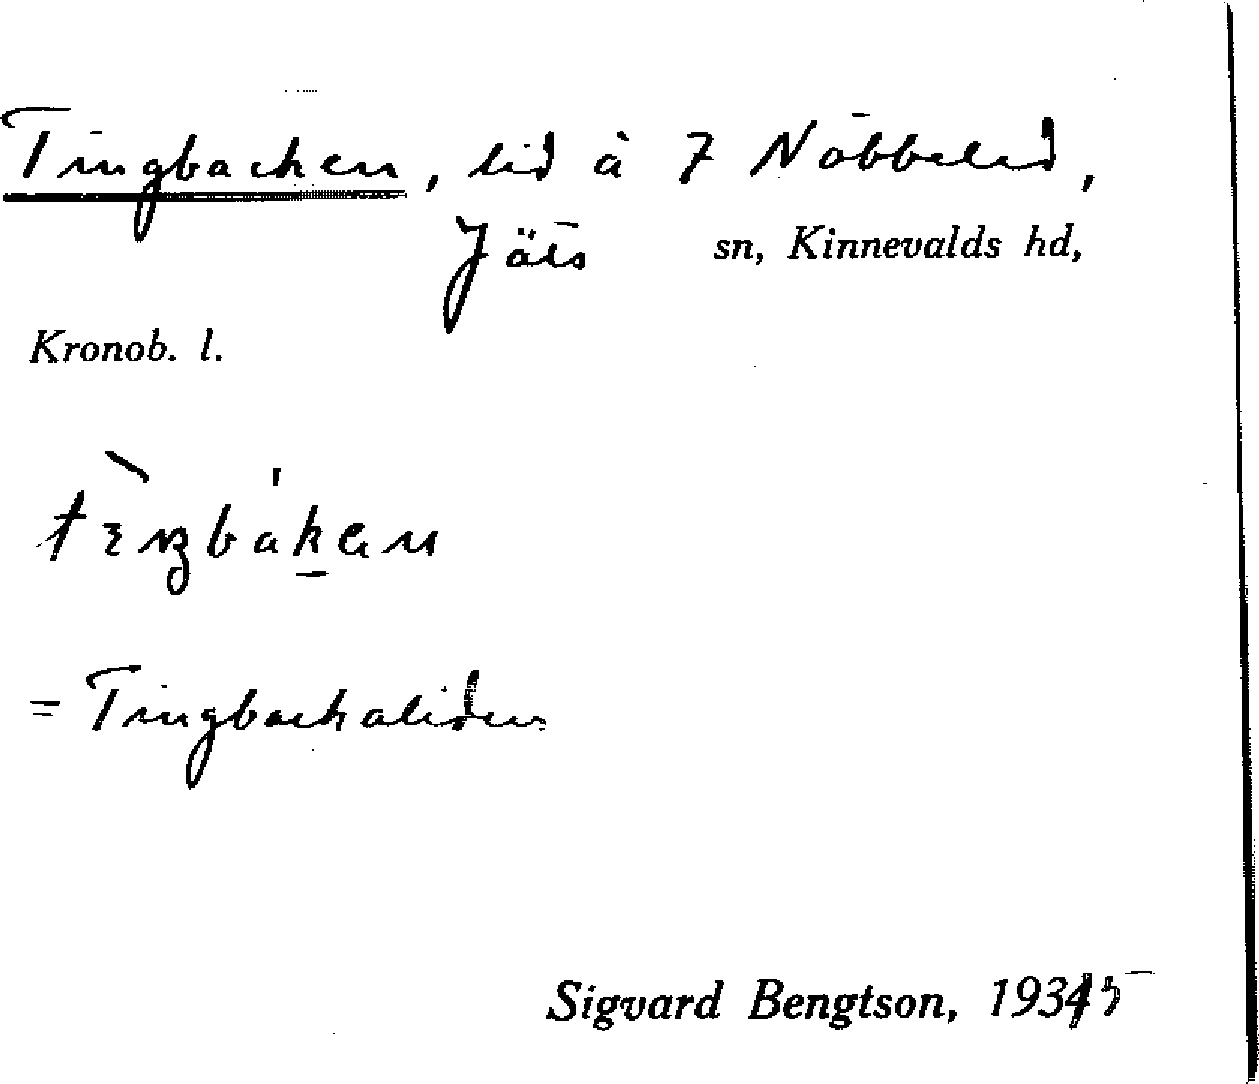 Tingbacken, lid å 7 Nöbbeled,
Jäts sn, Kinnevalds hd,
Kronob. l.
= Tingbackaliden
Sigvard Bengtson, 1935